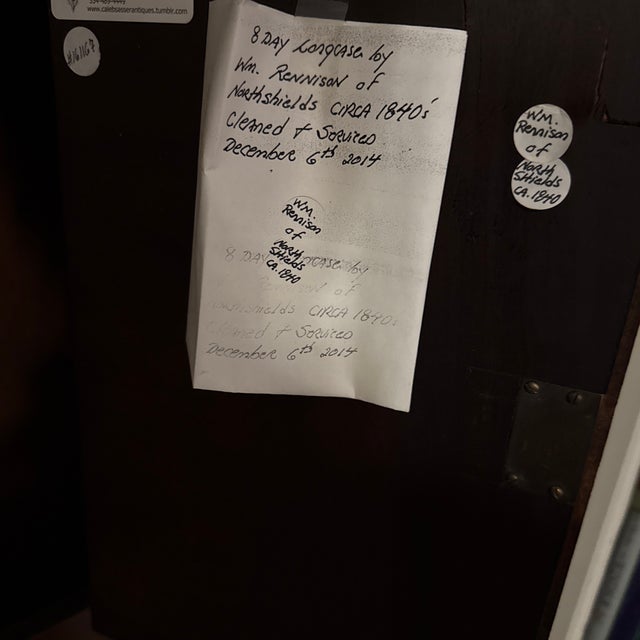 www.calebsesserantiques.tumblr.com
8 DAY Longcase by
Wm. Rennison of
Northshields CIRCA 1840s'
Cleaned + Serviced
December 6th 2014
Wm.
Rennison
of
North
Shields
CA. 1840
8 DAY by
of
CIRCA 1840s
+ Serviced
December 6th 2014
Wm.
Rennison
of
North
Shields
CA. 1840